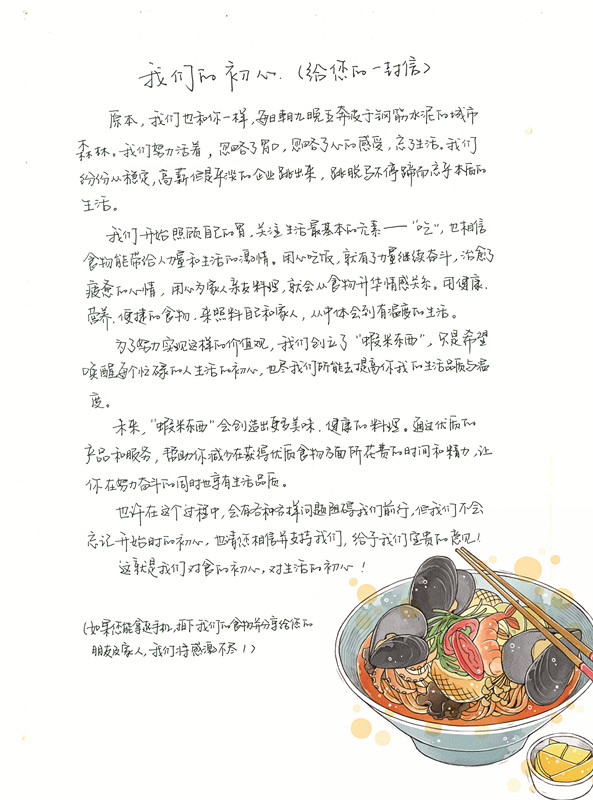 我们的初心.（给您的一封信）
原本，我们也和你一样，每日朝九晚五奔波于钢筋水泥的城市
森林。我们努力活着，忽略了胃口，忽略了心的感受，忘了生活。我们
纷纷从稳定，高薪但是平淡的企业跳出来，跳脱马不停蹄而忘乎本面的
生活。
我们开始照顾自己的胃，关注生活最基本的元素——“吃”，也相信
食物能带给人力量和生活的激情。用心吃饭，就有了力量继续奋斗，治愈了
疲惫的心情，用心为家人亲友料理，就会从食物升华情感关系。用健康、
营养、便捷的食物，来照料自己和家人，从中体会到有温度的生活。
为了努力实现这样的价值观，我们创立了“蝦米东西”，只是希望
唤醒每个忙碌的人生活的初心，也尽我们所能去提高你我的生活品质与温
度。
未来，“蝦米东西”会创造出更多美味、健康的料理。通过优质的
产品和服务，帮助你减少在获得优质食物方面所花费的时间和精力，让
你在努力奋斗的同时也享有生活品质。
也许在这个过程中，会有各种各样问题阻碍我们前行，但我们不会
忘记开始时的初心，也请您相信并支持我们，给予我们宝贵的意见！
这就是我们对食的初心，对生活的初心！
（如果您能拿起手机，拍下我们的食物分享给您的
朋友及家人，我们将感激不尽！）